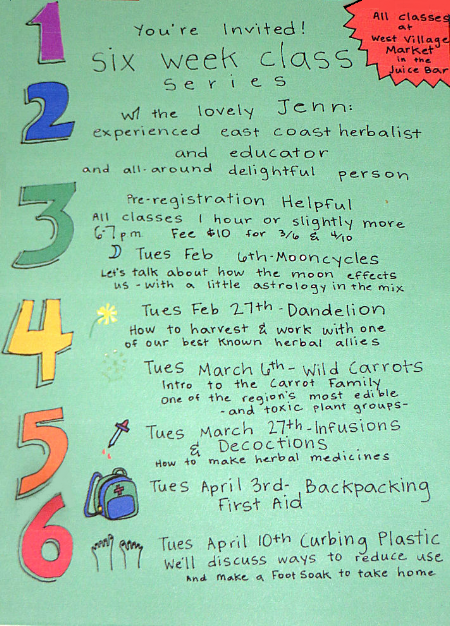 1
You're Invited!
six week class
series
All classes
at
West Village
Market
in the
Juice Bar
2
w/ the lovely Jenn:
experienced east coast herbalist
and educator
and all-around delightful person
3
Pre-registration Helpful
All classes 1 hour or slightly more
6-7 pm Fee $10 for 3/6 & 4/10
Tues Feb 6th-Mooncycles
Let's talk about how the moon effects
us - with a little astrology in the mix
4
Tues Feb 27th-Dandelion
How to harvest & work with one
of our best known herbal allies
Tues March 6th- Wild Carrots
Intro to the Carrot Family
one of the region's most edible
-and toxic plant groups-
5
Tues March 27th-Infusions
& Decoctions
How to make herbal medicines
Tues April 3rd- Backpacking
First Aid
6
Tues April 10th Curbing Plastic
We'll discuss ways to reduce use
And make a Foot Soak to take home